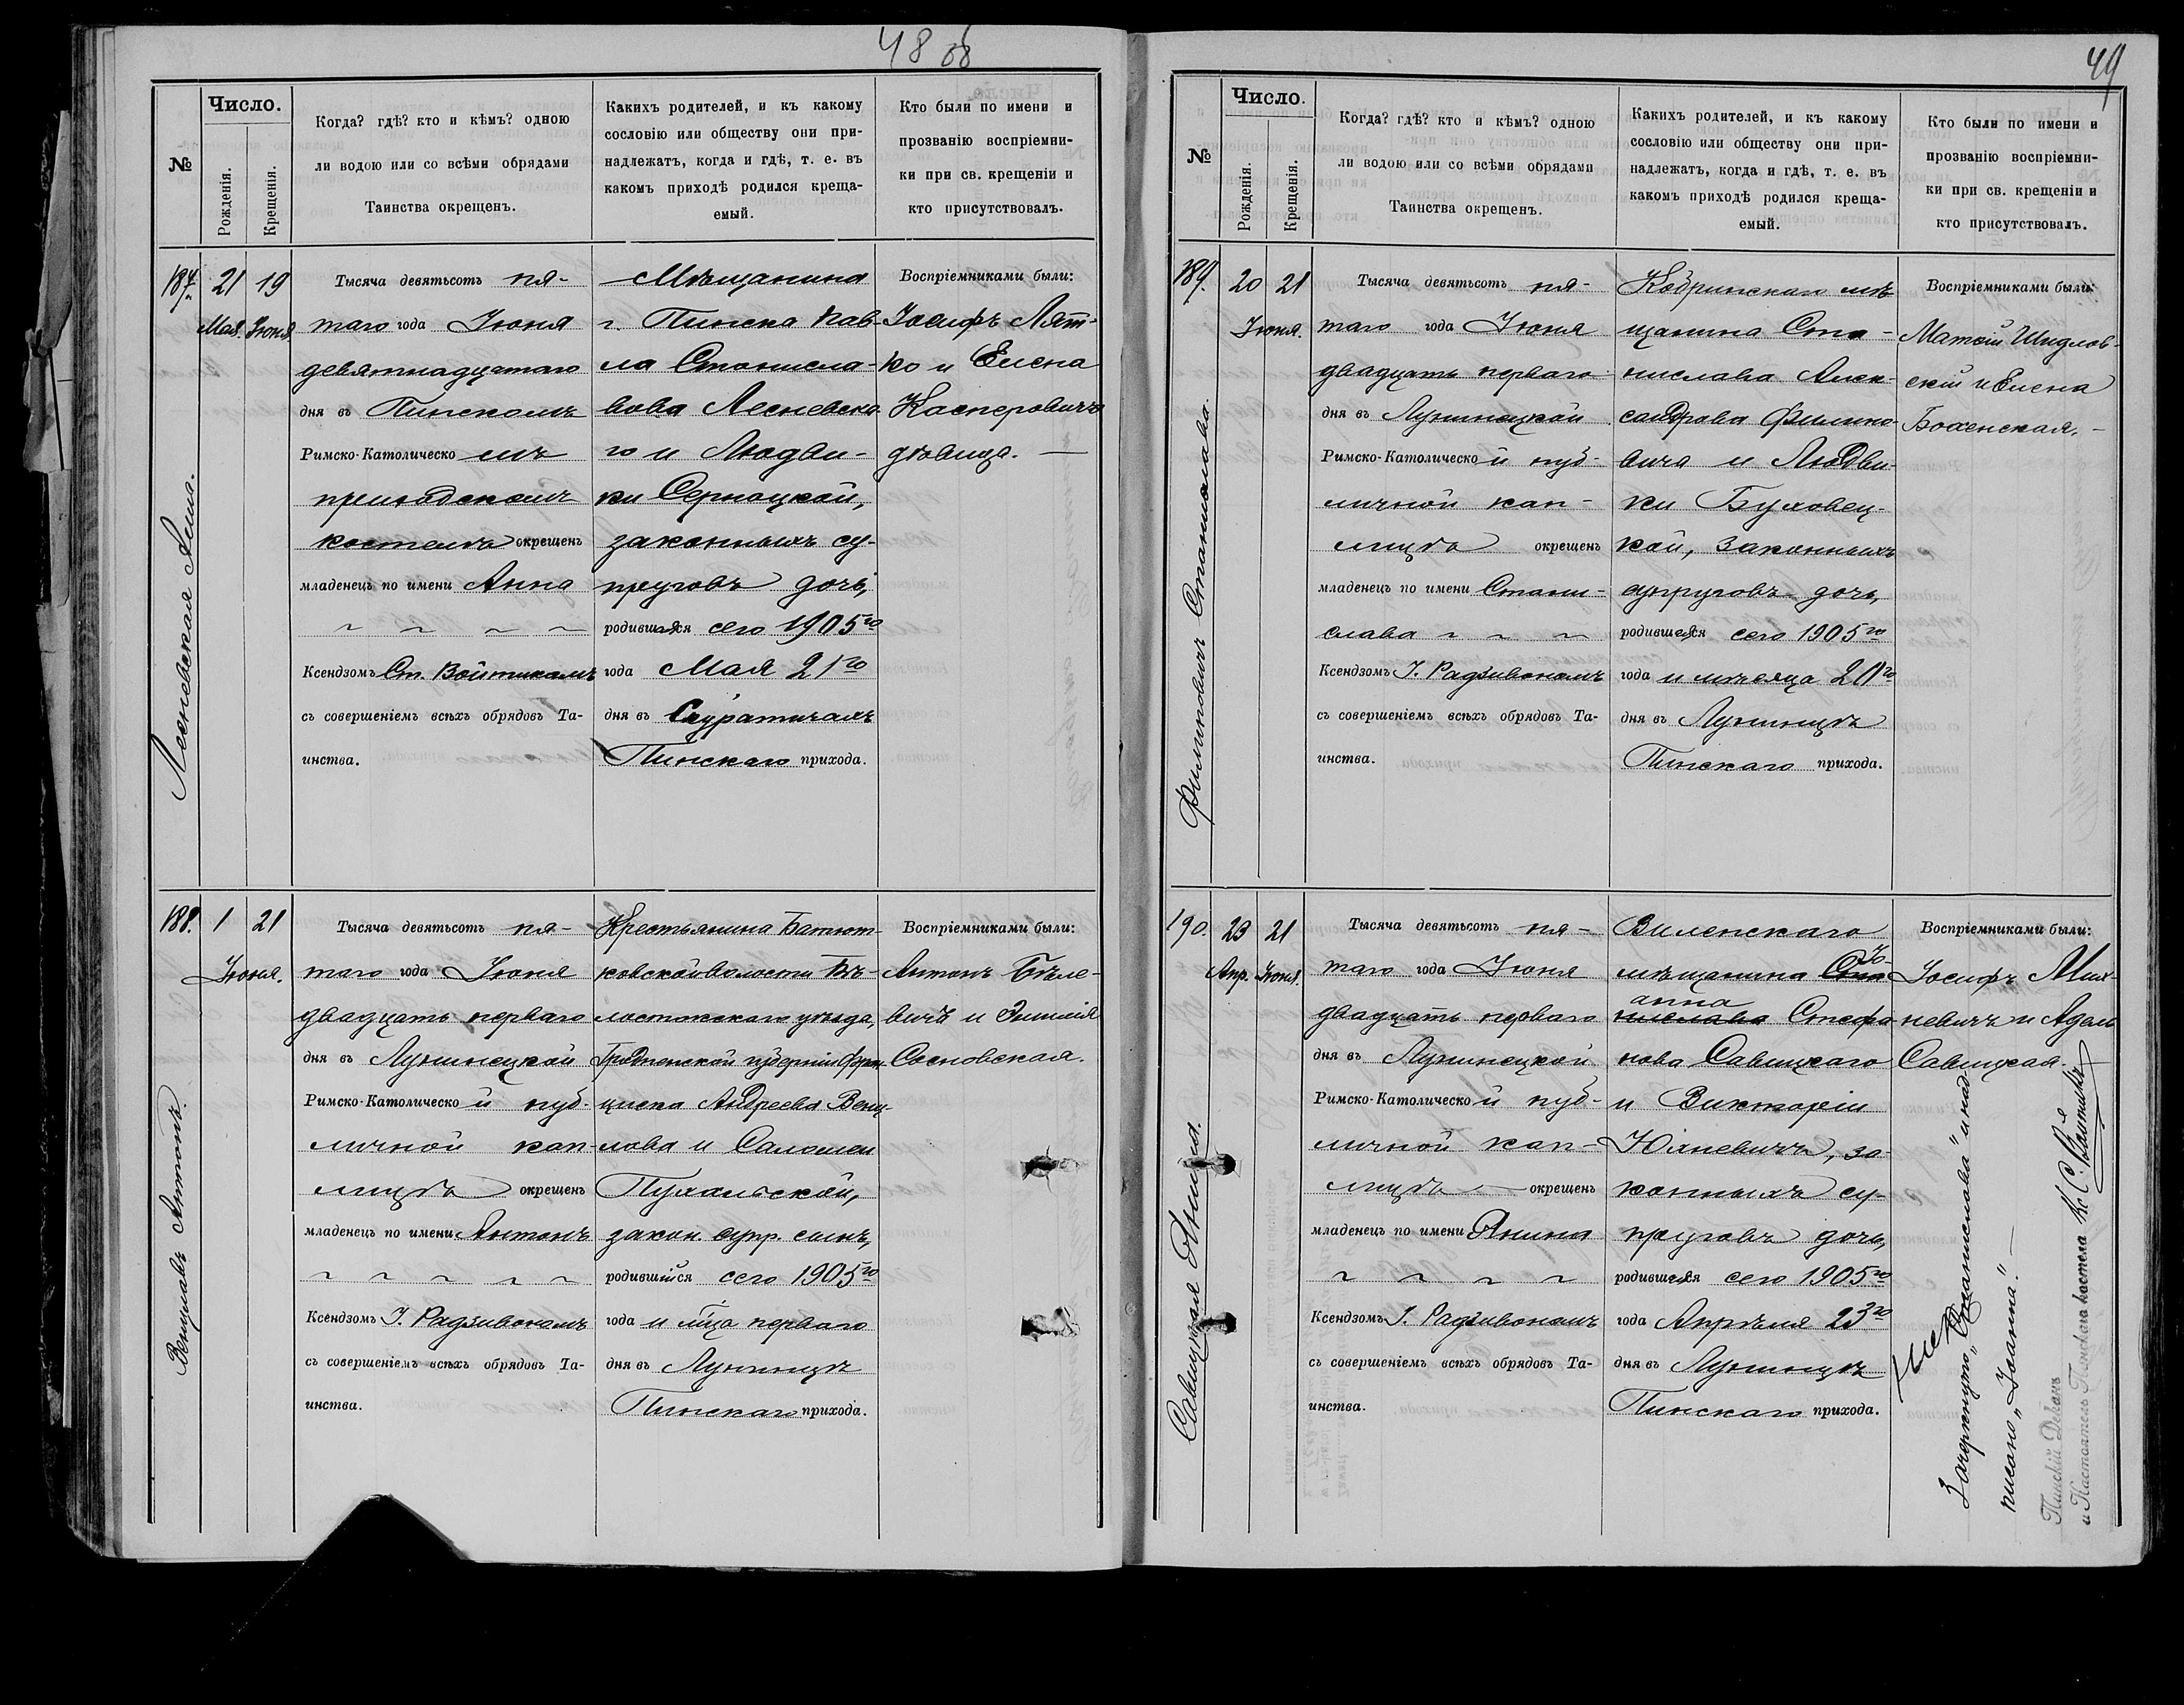 48 об
№
Число.
Рожденія.
Крещенія.
Когда? гдѣ? кто и кѣмъ? одною
ли водою или со всѣми обрядами
Таинства окрещенъ.
Какихъ родителей, и къ какому
сословію или обществу они при-
надлежатъ, когда и гдѣ, т. е. въ
какомъ приходѣ родился креща-
емый.
Кто были по имени и
прозванію воспріемни-
ки при св. крещеніи и
кто присутствовалъ.
187.
Лесневская Анна.
21
Мая.
19
Іюня.
Тысяча девятьсотъ пя-
таго года Іюня
девятнадцатаго
дня въ Пинскомъ
Римско-Католическомъ
приходскомъ
костелѣ окрещенъ
младенецъ по имени Анна
Ксендзомъ Ст. Войтикомъ
съ совершеніемъ всѣхъ обрядовъ Та-
инства.
Мѣщанина
г. Пинска Пав-
ла Станисла-
вова Лесневска-
го и Людви-
ки Серноцкой,
законныхъ су-
пруговъ дочь,
родившаяся сего 1905го
года Мая 21го
дня въ
Пинскаго прихода.
Воспріемниками были:
Іосифъ Лят-
ко и Елена
Касперовичъ
дѣвица. —
188.
Венцлавъ Антонъ.
1
21
Іюня.
Тысяча девятьсотъ пя-
таго года Іюня
двадцать перваго
дня въ Лунинецкой
Римско-Католической пуб-
личной кап-
лицѣ окрещенъ
младенецъ по имени Антонъ
Ксендзомъ І. Радзивономъ
съ совершеніемъ всѣхъ обрядовъ Та-
инства.
Крестьянина
волости Бѣ-
лостокскаго уѣзда,
Гродненской губерніи Фран-
циска Андреева Венц-
лова и Саломеи
Пухальской,
закон. супр. сынъ,
родившійся сего 1905го
года и мца перваго
дня въ Лунинцѣ
Пинскаго прихода.
Воспріемниками были:
Антонъ Бѣле-
вичъ и Эмилія
Сосновская.
49
№
Число.
Рожденія.
Крещенія.
Когда? гдѣ? кто и кѣмъ? одною
ли водою или со всѣми обрядами
Таинства окрещенъ.
Какихъ родителей, и къ какому
сословію или обществу они при-
надлежатъ, когда и гдѣ, т. е. въ
какомъ приходѣ родился креща-
емый.
Кто были по имени и
прозванію воспріемни-
ки при св. крещеніи и
кто присутствовалъ.
189.
Филиповичъ Станислава.
20
21
Іюня.
Тысяча девятьсотъ пя-
таго года Іюня
двадцать перваго
дня въ Лунинецкой
Римско-Католической пуб-
личной кап-
лицѣ окрещенъ
младенецъ по имени Стани-
слава
Ксендзомъ І. Радзивономъ
съ совершеніемъ всѣхъ обрядовъ Та-
инства.
Кобринскаго мѣ-
щанина Ста-
нислава Алек-
сандрова Филипо-
вича и Людви-
ки Буховец-
кой, законныхъ
супруговъ дочь,
родившаяся сего 1905го
года и мѣсяца 20го
дня въ Лунинцѣ
Пинскаго прихода.
Воспріемниками были:
Матвій Шидлов-
скій и Елена
Боженская. —
190.
Савицкая Янина.
23
Апр.
21
Іюня.
Тысяча девятьсотъ пя-
таго года Іюня
двадцать перваго
дня въ Лунинецкой
Римско-Католической пуб-
личной кап-
лицѣ окрещенъ
младенецъ по имени Янина
Ксендзомъ І. Радзивономъ
съ совершеніемъ всѣхъ обрядовъ Та-
инства.
Виленскаго
мѣщанина Ста Іо-
анна
нислава Стефа-
нова Савицкаго
и Викторіи
Юхневичъ, за-
конныхъ су-
пруговъ дочь,
родившаяся сего 1905го
года Апрѣля 23го
дня въ Лунинцѣ
Пинскаго прихода.
Воспріемниками были:
Іосифъ Мих-
невичъ и Адель
Савицкая.
Зачеркнуто „Станислава" и над-
писано „Іоанна". —
Пинскій Деканъ
и Настоятель Пинскаго костела К. С. Войтикъ